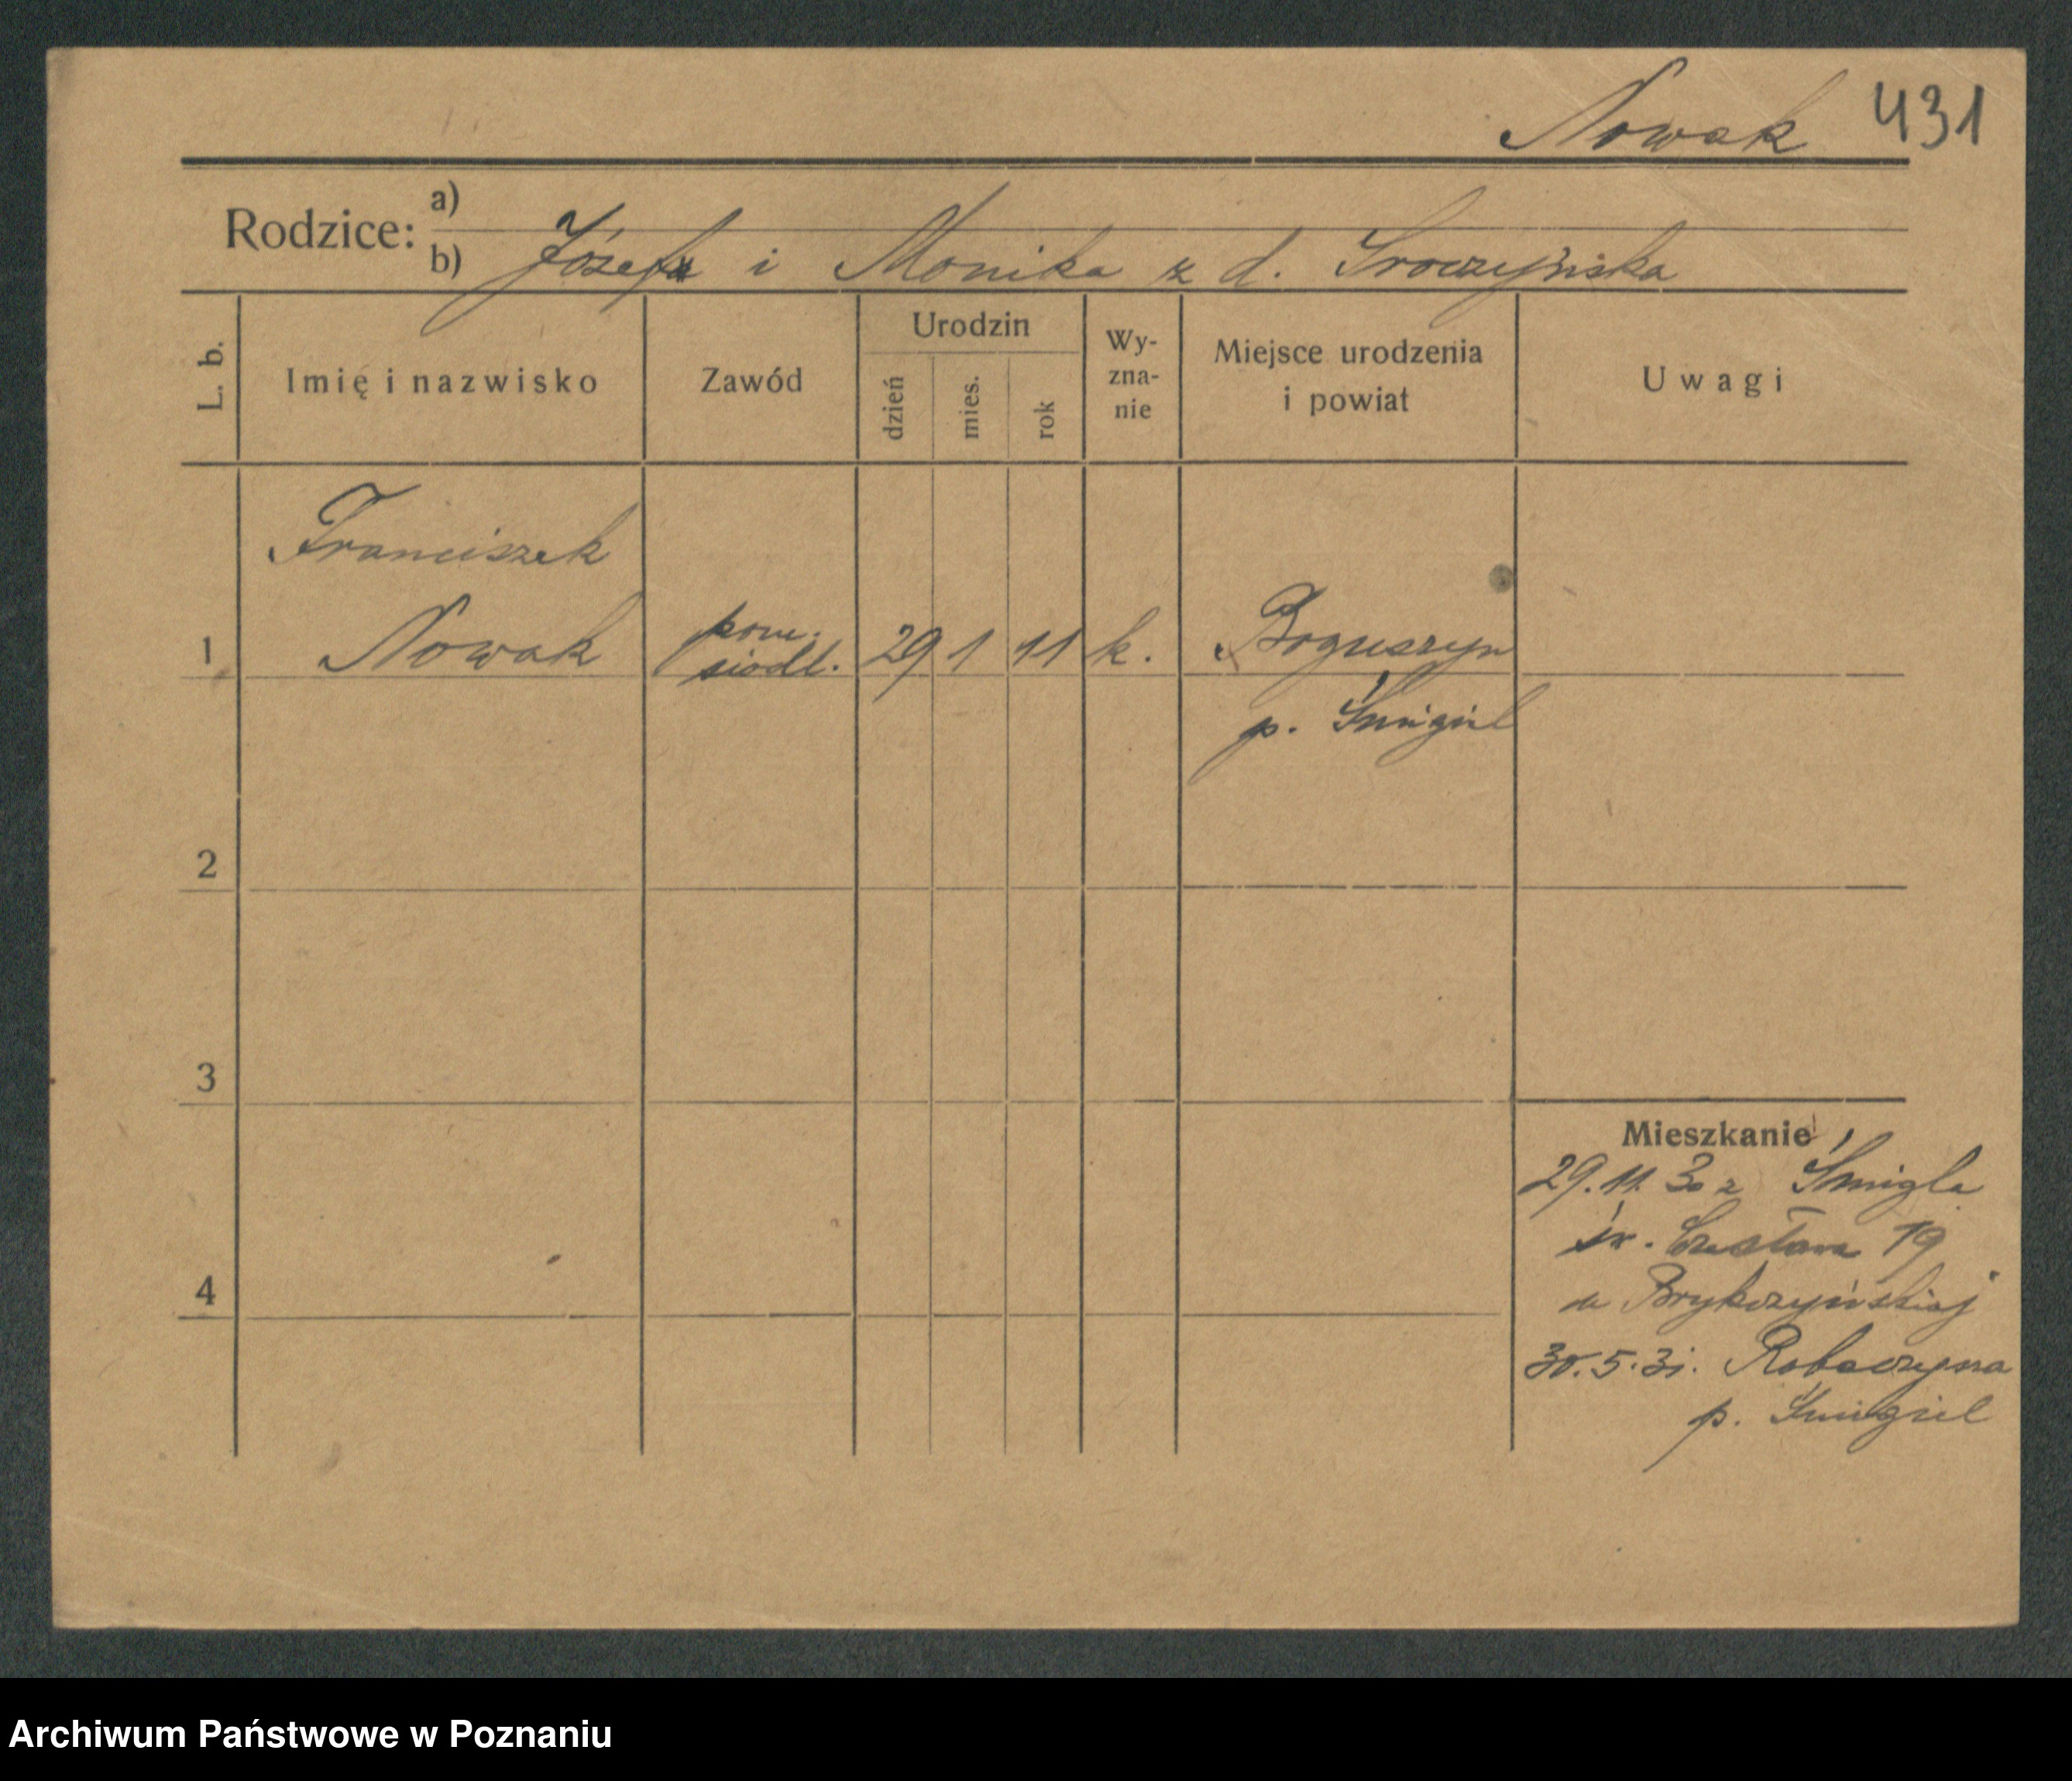 Nowak 431
Rodzice:
a)
b) Józefa i Monika z d. Sroczyńska
L. b.
Imię i nazwisko
Zawód
Urodzin
dzień
mies.
rok
Wy-
zna-
nie
Miejsce urodzenia
i powiat
Uwagi
Franciszek
1 Nowak pom. siodl. 29 1 11 k. Boguszyn
p. Śmigiel
2
3
4
Mieszkanie
29.11.30 z Śmigla
św. Czesława 19
u Brykczyńskiej
30.5.31. Robaczyna
p. Śmigiel
Archiwum Państwowe w Poznaniu